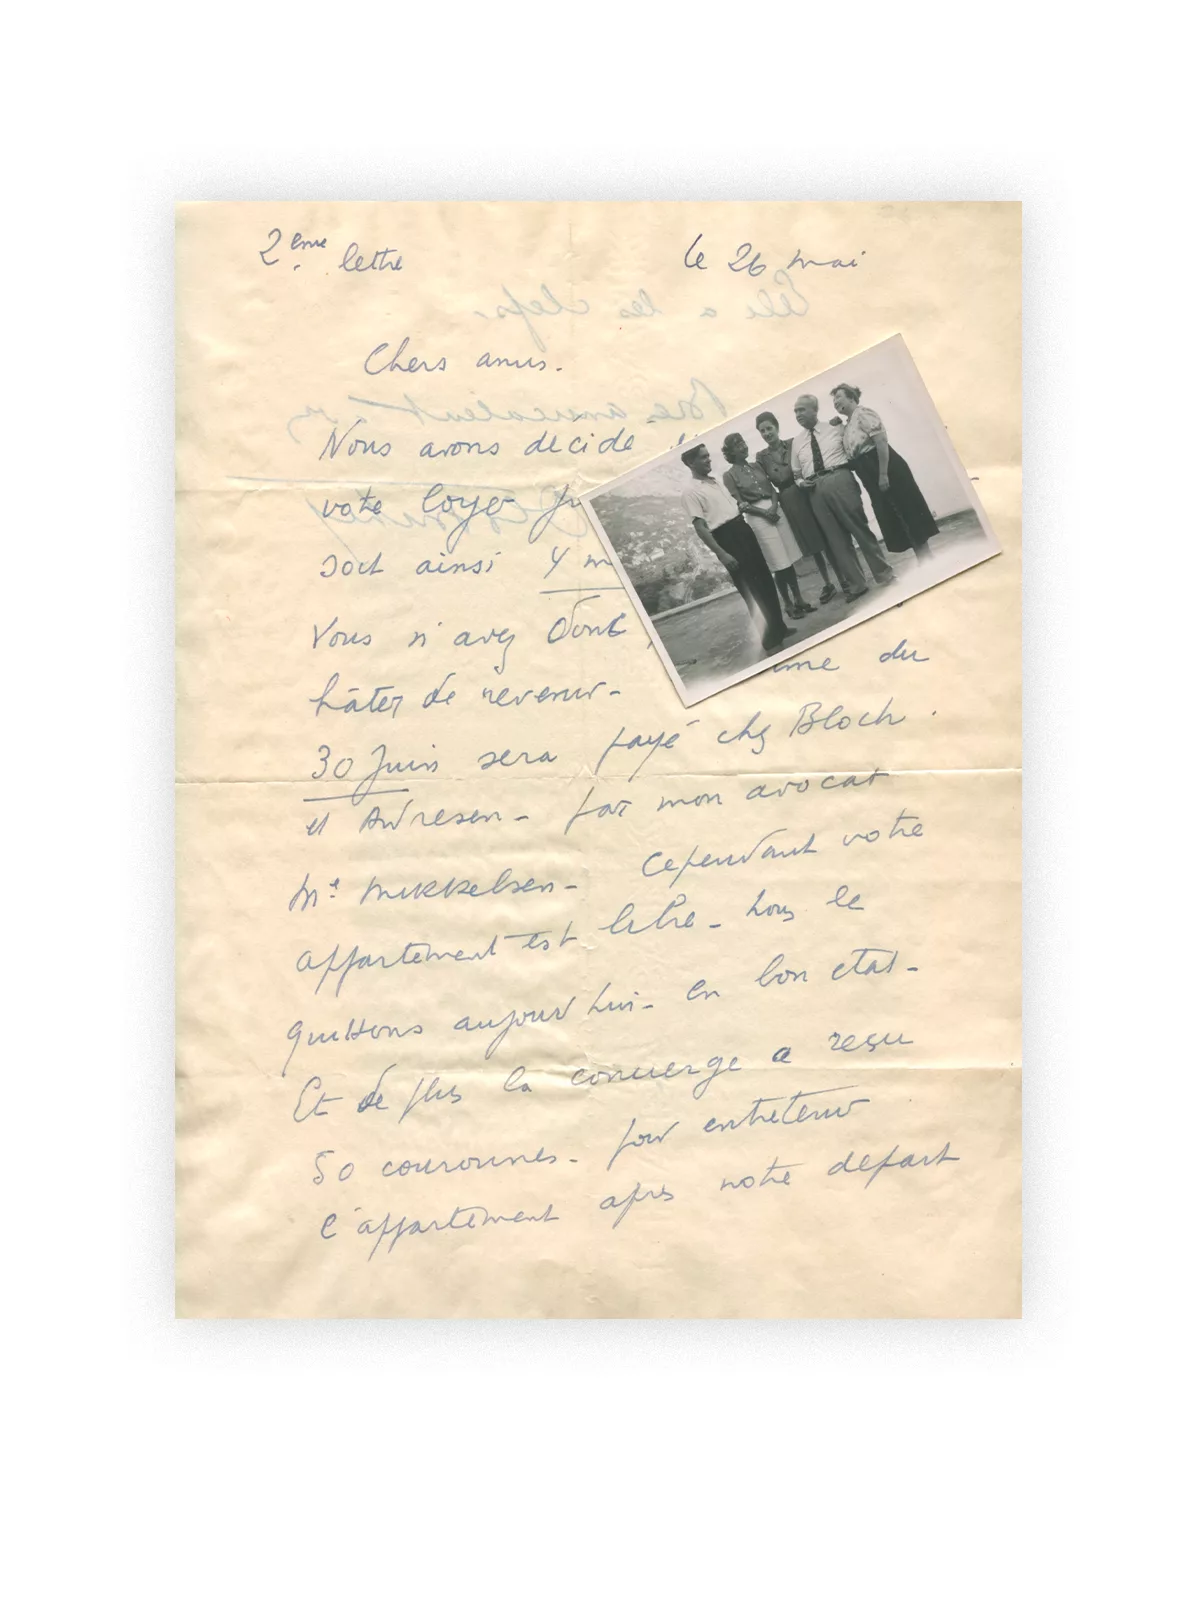 2ème lettre
le 26 mai
Chers amis.
Nous avons decide
votre loyer
soit ainsi 4 m
Vous n'avez dont
hâter de revenir -
du
30 Juin sera payé chez Bloch.
et Andresen - par mon avocat
Me Mikkelsen - Cependant votre
appartement est libre - nous le
quittons aujourd'hui - en bon etat -
Et de plus la concierge a reçu
50 couronnes - pour entretenir
l'appartement apres notre depart
Elle a les clefs.
Bien amicalement